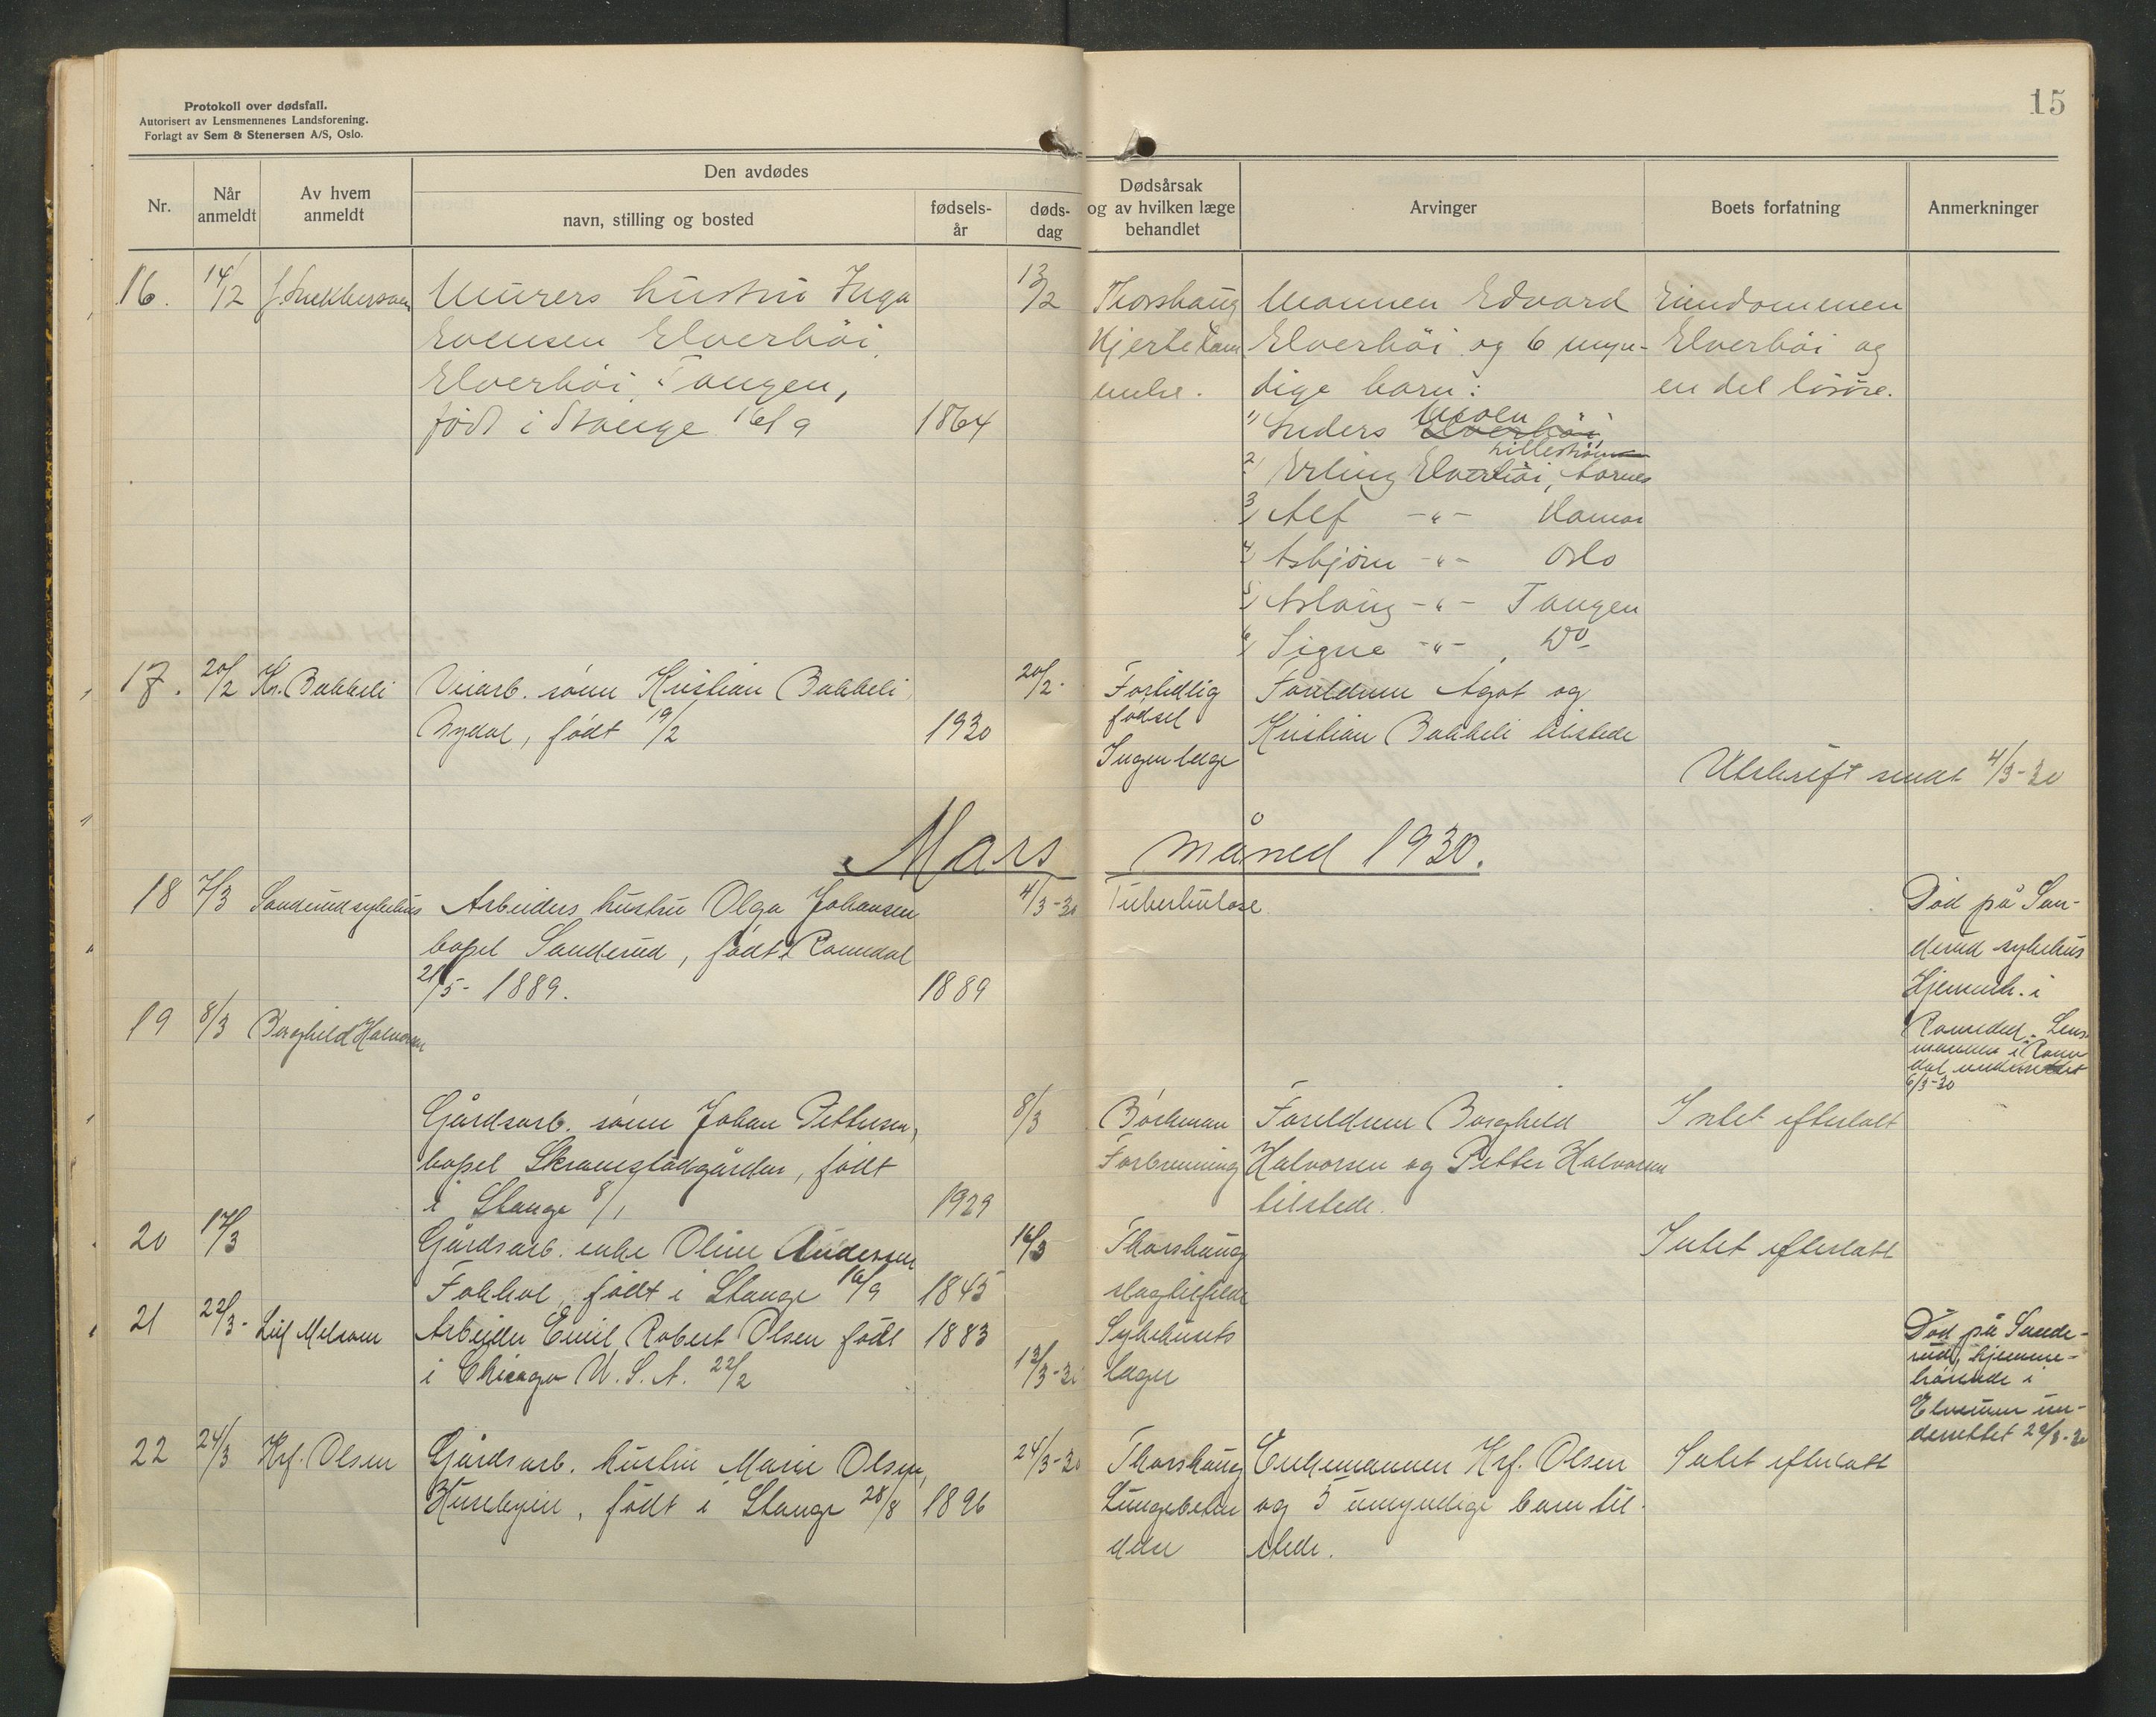 Protokoll over dødsfall.
Autorisert av Lensmennenes Landsforening.
Forlagt av Sem & Stenersen A/S, Oslo.
15
Nr.
Når anmeldt
Av hvem anmeldt
Den avdødes
navn, stilling og bosted
fødsels-år
døds-dag
Dødsårsak og av hvilken læge behandlet
Arvinger
Boets forfatning
Anmerkninger
16. 14/2
Murers hustru Inga
Evensen Elverhöi,
Elverhöi, Tangen,
født i Stange 16/9 1864
13/2
Thorshaug
Hjertelam
melse.
Mannen Edvard
Elverhöi og 6 myn-
dige barn:
1) Anders Moen Elverhöi
Lillestrøm
2) Erling Elverhöi, Aarnes
3) Alf -"- Hamar
4) Asbjörn -"- Oslo
5) Aslaug -"- Tangen
6) Signe -"- Do
Eiendommen
Elverhöi og
en del lösöre.
17. 20/2 Kr. Bakkeli
Veiarb. sönn Kristian Bakkeli
født 19/2 1930
20/2.
Fortidlig
födsel
Ingen lege
Foreldrene Agot og
Kristian Bakkeli tilstede
Utskrift sendt 4/3-30
Mars måned 1930.
18 7/3 Sanderud sykehus
Arbeiders hustru Olga Johansen
bopel Sanderud, født i Romedal
21/5-1889. 1889
4/3-30
Tuberkulose
Död på San-
derud sykehus
Hjemmeh. i
Romedal. Lens-
mannen i Rome
dal underrettet
6/3-30
19 8/3 Borghild Halvorsen
Gårdsarb. sönn Johan Pettersen,
bopel Skramstadgården, født
i Stange 8/1 1929
8/3
Forbrenning
Foreldrene Borghild
Halvorsen og Petter Halvorsen
tilstede.
Intet efterlatt
20 17/3
Gårdsarb. enke Oline Andersen
Fokhol, født i Stange 16/9 1845
16/3
Thorshaug
slagtilfelde
Intet efterlatt
21 22/3- Leif Melsom
Arbeider Emil Robert Olsen født 1883
i Chicago U.S.A. 22/2
13/3-30
Sykehusets
læge
Död på Sande-
rud, hjemme-
hörende i
Elverum un-
derrettet 22/3-30
22 24/3 Krf. Olsen
Gårdsarb. hustru Marie Olsen,
Husebyeie, født i Stange 28/8 1896
24/3-30
Thorshaug
Lungebeten
delse
Enkemannen Krf. Olsen
og 5 umyndige barn til-
stede.
Intet efterlatt